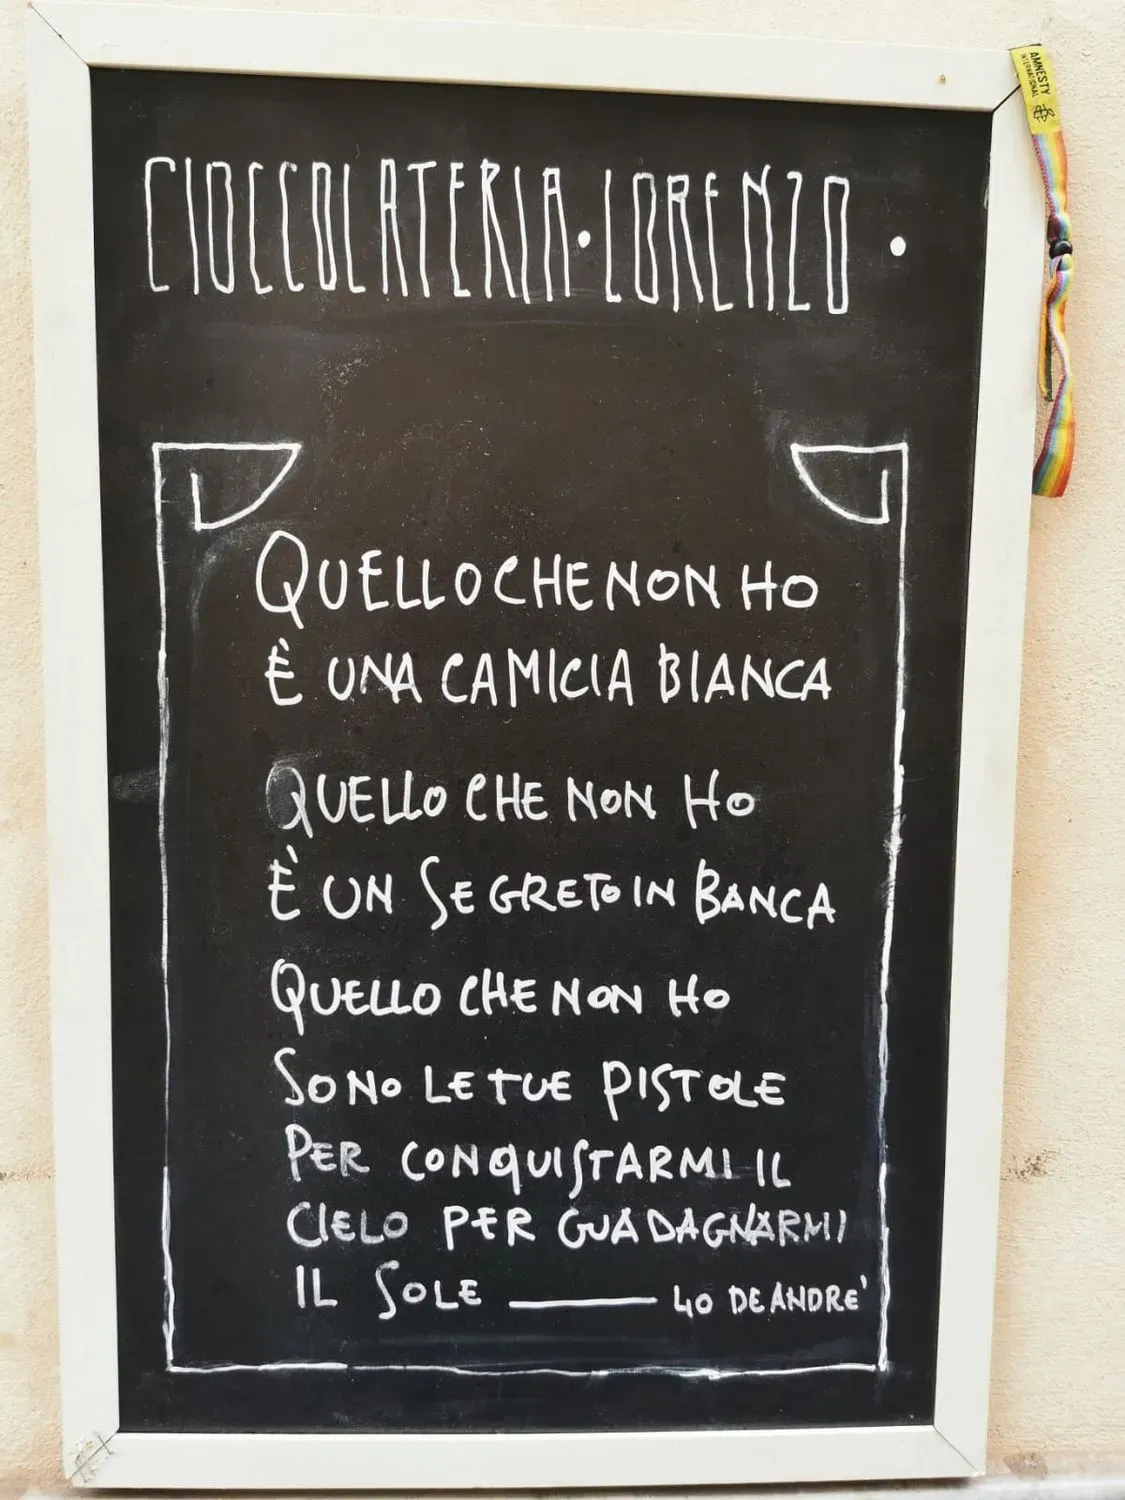 CIOCCOLATERIA · LORENZO ·
AMNESTY
INTERNATIONAL
QUELLO CHE NON HO
È UNA CAMICIA BIANCA
QUELLO CHE NON HO
È UN SEGRETO IN BANCA
QUELLO CHE NON HO
SONO LE TUE PISTOLE
PER CONQUISTARMI IL
CIELO PER GUADAGNARMI
IL SOLE —— 40 DE ANDRE'